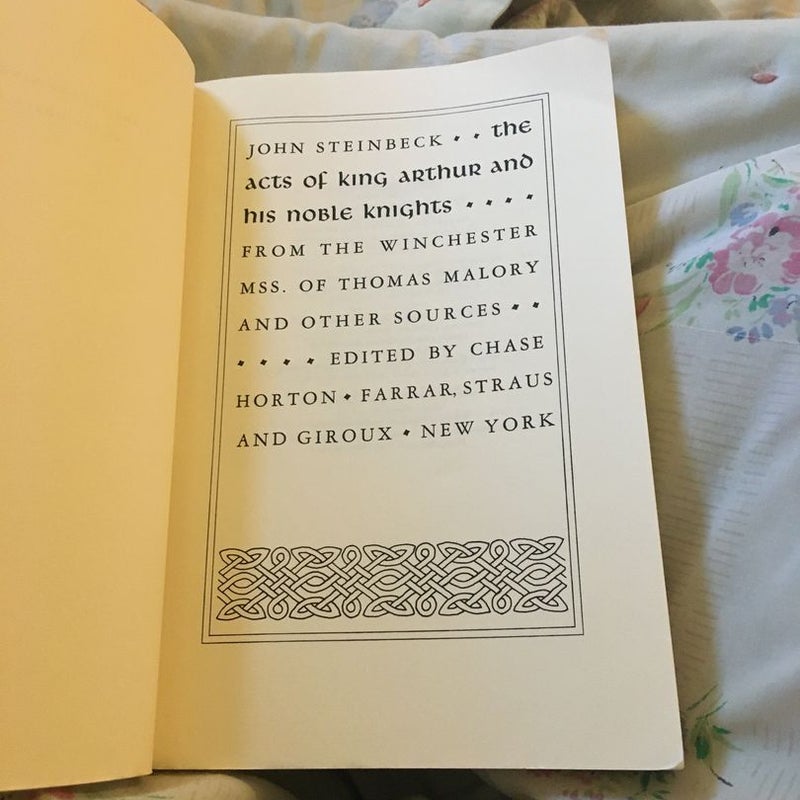 JOHN STEINBECK • • the
acts of king arthur and
his noble knights • • • •
FROM THE WINCHESTER
MSS. OF THOMAS MALORY
AND OTHER SOURCES • •
• • • • EDITED BY CHASE
HORTON • FARRAR, STRAUS
AND GIROUX • NEW YORK